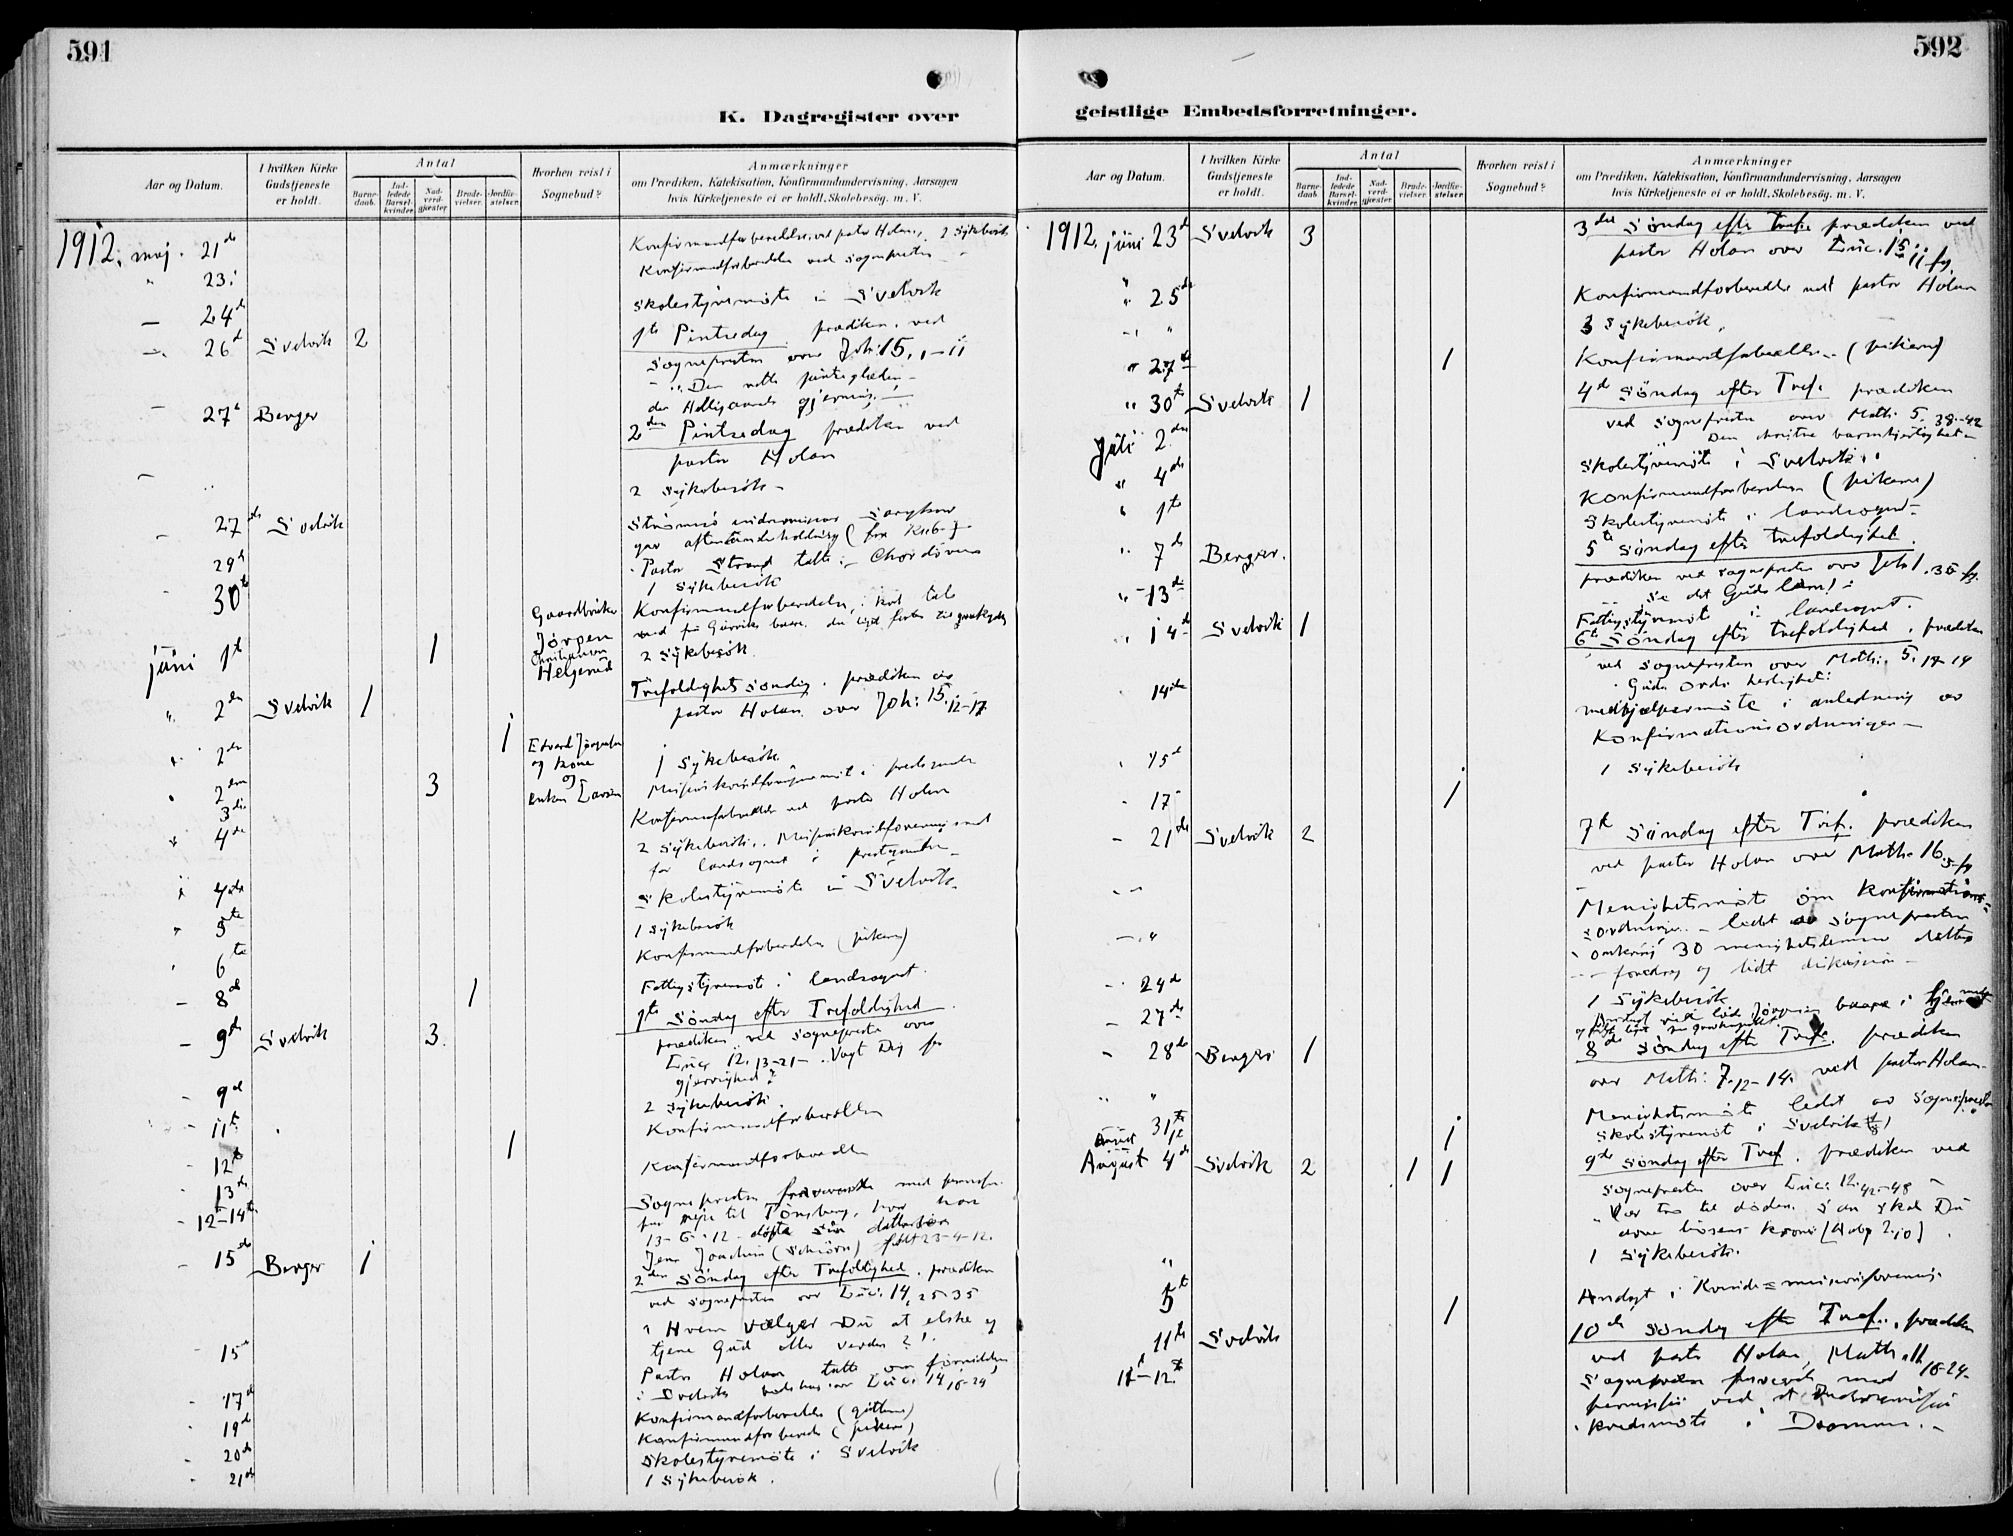 591
K. Dagregister over
Aar og Datum.
I hvilken Kirke Gudstjeneste er holdt.
Antal
Barne-daab.
Ind-ledede Barsel-kvinder.
Nad-verd-gjæster
Brude-vielser.
Jordfæ-stelser.
Hvorhen reist i Sognebud?
Anmærkninger
om Prædiken, Katekisation, Konfirmandundervisning, Aarsagen
hvis Kirketjeneste ei er holdt, Skolebesøg. m. V.
1912. maj. 21de Konfirmandforberedelse ved pastor Holan, 2 Sykebesök
23. Konfirmandforberedelse ved sognepresten
24de Skolestyremöte i Svelvik
26de Svelvik 2 1ste Pintsedag. prædiken ved
Sognepresten over Joh: 15, 1-11
den Helligaands gjerning.
27de Berger 2den Pintsedag prædiken ved
pastor Holan
2 Sykebesök
27de Svelvik
Pastor Strand talte
29de 1 Sykebesök
30te Konfirmandforberedelse
juni 1ste 1 Gaardbruker Jörgen Christiansen Helgerud 2 Sykebesök
2den Svelvik 1 Trefoldighetssöndag. prædiken av
pastor Holan over Joh: 15, 12-17
2den 1
2den 3 og enken Larsen 1 Sykebesök
3die Konfirmandforberedelse ved pastor Holan
4de 2 Sykebesök. Missionskvindeforeningsmöte
for landsognet i prestegaarden
4de Skolestyremöte i Svelvik
5te 1 Sykebesök
6te Konfirmandforberedelse (pikerne)
8de 1 Fattigstyremöte i landsognet.
9de Svelvik 3 1ste Söndag efter Trefoldighed
prædiken ved Sognepresten over
Luc. 12, 13-21 - Vogt Dig for
gjerrighed
9de 2 Sykebesök.
11te Konfirmandforberedelse
12te 1 Konfirmandforberedelse
13de
12te-14te Sognepresten fraværende med permission
paa reise til Tönsberg, hvor han
13-6-12 döpte sin dattersön
Jens Joachim (Schiörn) född 23-4-12.
15de Berger 1 2den Söndag efter Trefoldighed. prædiken
ved sognepresten over Luc: 14, 25-35
Hvem vælger Du at elske og
tjene Gud eller verden?
15de Pastor Holan talte om formiddagen
i Svelviks bedehus over Luc: 14, 16-24
17de Konfirmandforberedelse (gutterne)
19de Konfirmandforberedelse (pikerne)
20de Skolestyremöte i Svelvik
21de 1 Sykebesök.
592
geistlige Embedsforretninger.
Aar og Datum.
I hvilken Kirke Gudstjeneste er holdt.
Antal
Barne-daab.
Ind-ledede Barsel-kvinder.
Nad-verd-gjæster
Brude-vielser.
Jordfæ-stelser.
Hvorhen reist i Sognebud?
Anmærkninger
om Prædiken, Katekisation, Konfirmandundervisning, Aarsagen
hvis Kirketjeneste ei er holdt. Skolebesög. m. V.
1912. juni 23de Svelvik 3 3die Söndag efter Tref. prædiken ved
pastor Holan over Luc. 15, 11 fg.
25de Konfirmandforberedelse ved pastor Holan
3 Sykebesök.
27de 1 Konfirmandforberedelse (pikerne)
30te Svelvik 1 4de Söndag efter Tref. prædiken
ved Sognepresten over Math. 5, 38-42
Den christne barmhjertighet
Juli 2den Skolestyremöte i Svelvik
4de Konfirmandforberedelse (pikerne)
1ste Skolestyremöte i landsognet
7de Berger. 5te Söndag efter trefoldighet.
prædiken ved sognepresten over Joh 1. 35 fg.
Se det Guds lam!
13de Fattigstyremöte i landsognet.
14de Svelvik 1 6te Söndag efter trefoldighed. prædiken
ved Sognepresten over Math. 5, 17-19
Guds Ords herlighet.
14de medhjælpermöte i anledning av
Konfirmationsordningen
15de 1 Sykebesök
17 1
21de Svelvik 2 7de Söndag efter Tref. prædiken
ved pastor Holan over Math. 16, 5 fg
Menighetsmöte om Konfirmations-
ordningen - ledet av Sognepresten
omkring 30 menighetslemmer deltog
foredrag og lidt diskussion
24de 1 Sykebesök
27de
28de Berger 1 8de Söndag efter Tref. prædiken
over Math: 7. 12-14. ved pastor Holan.
Menighetsmöte ledet av Sognepresten
31te Skolestyremöte i Svelvik
August 1ste 1
August 4de Svelvik 2 1 1 9de Söndag efter Tref. prædiken ved
Sognepresten over Luc: 12, 42-48
Vær tro til döden, saa skal Du
arve livsens krone [Aab 2. 10]
1 Sykebesök.
5te 1 Andagt i Kvinde-missionsforening.
11te Svelvik 10de Söndag efter Tref. prædiken
ved pastor Holan, Math. 11, 16-24.
11te-12te Sognepresten fraværende med
permission ved et Indremissions
kredsmöte i Drammen.